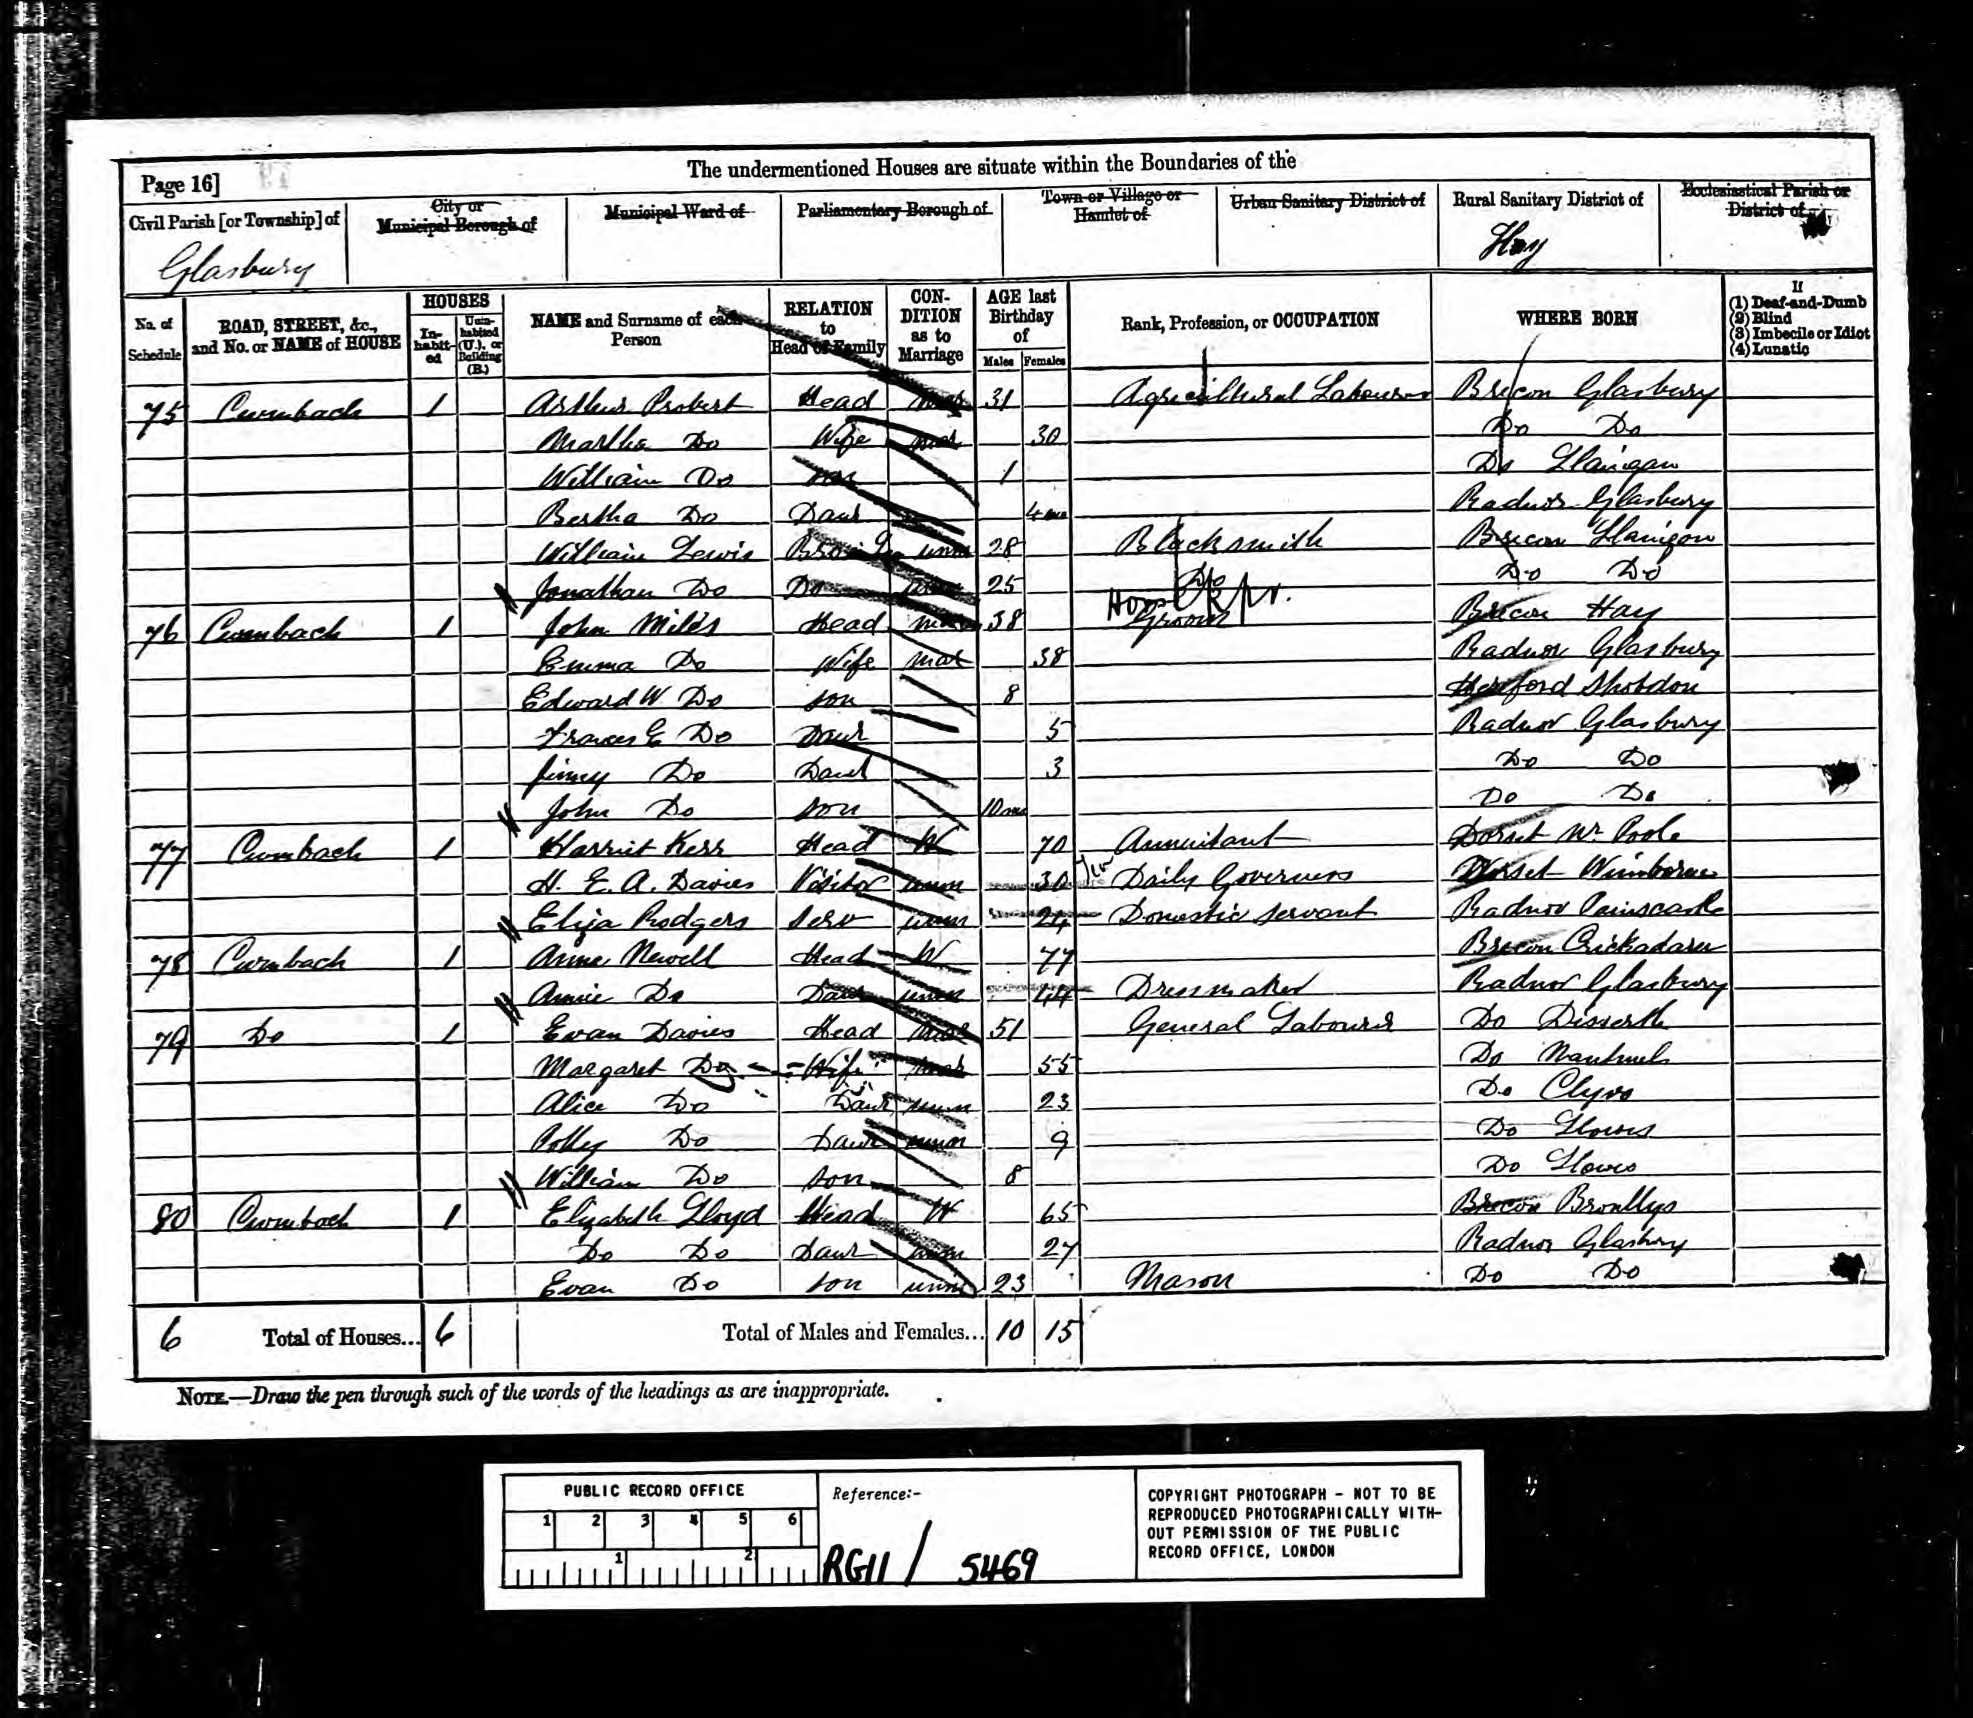 The undermentioned Houses are situate within the Boundaries of the
Page 16]
Civil Parish [or Township] of
City or Municipal Borough of
Municipal Ward of
Parliamentary Borough of
Town or Village or Hamlet of
Urban Sanitary District of
Rural Sanitary District of
Ecclesiastical Parish or District of
Glasbury Hay
No. of Schedule
ROAD, STREET, &c., and No. or NAME of HOUSE
HOUSES
In-habit-ed
Unin-habited (U.), or Building (B.)
NAME and Surname of each Person
RELATION to Head of Family
CON-DITION as to Marriage
AGE last Birthday of
Males Females
Rank, Profession, or OCCUPATION
WHERE BORN
If
(1) Deaf-and-Dumb
(2) Blind
(3) Imbecile or Idiot
(4) Lunatic
75 Cwmbach 1 Arthur Probert Head mar 31 Agricultural Labourer Brecon Glasbury
Martha Do Wife mar 30 Do Do
William Do son 1 Do Llanigon
Bertha Do Daur 4 mo Radnor Glasbury
William Lewis unm 28 Blacksmith Brecon Llanigon
Jonathan Do Do unm 25 Do Do Do
76 Cwmbach 1 John Miles Head mar 38 Groom Brecon Hay
Emma Do Wife mar 38 Radnor Glasbury
Edward W. Do son 8 Hereford Shobdon
Frances E Do Daur 5 Radnor Glasbury
Jinny Do Daur 3 Do Do
John Do son 10 mo Do Do
77 Cwmbach 1 Harriet Kerr Head W 70 Annuitant Dorset Nr Poole
H. E. A. Davies Visitor unm 30 Daily Governess Dorset Wimborne
Eliza Rodgers Serv unm 24 Domestic Servant Radnor Painscastle
78 Cwmbach 1 Anne Newell Head W 77 Brecon Crickadarn
Annie Do Daur unm 44 Dressmaker Radnor Glasbury
79 Do 1 Evan Davies Head mar 51 General Labourer Do Disserth
Margaret Do Wife mar 55 Do Nantmel
Alice Do Daur unm 23 Do Clyro
Polly Do Daur unm 9 Do Llowes
William Do son 8 Do Llowes
80 Cwmbach 1 Elizabeth Lloyd Head W 65 Brecon Bronllys
Do Do Daur unm 27 Radnor Glasbury
Evan Do son unm 23 Mason Do Do
6 Total of Houses... 6 Total of Males and Females... 10 15
NOTE.—Draw the pen through such of the words of the headings as are inappropriate.
PUBLIC RECORD OFFICE
1 2 3 4 5 6
1 2
Reference:-
RG11 / 5469
COPYRIGHT PHOTOGRAPH - NOT TO BE
REPRODUCED PHOTOGRAPHICALLY WITH-
OUT PERMISSION OF THE PUBLIC
RECORD OFFICE, LONDON